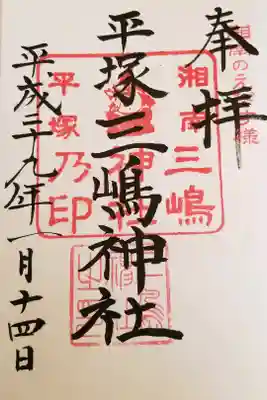 奉拝
湘南のえびす様
湘南三嶋
平塚乃印
平塚三嶋神社
平成二九年一月十四日